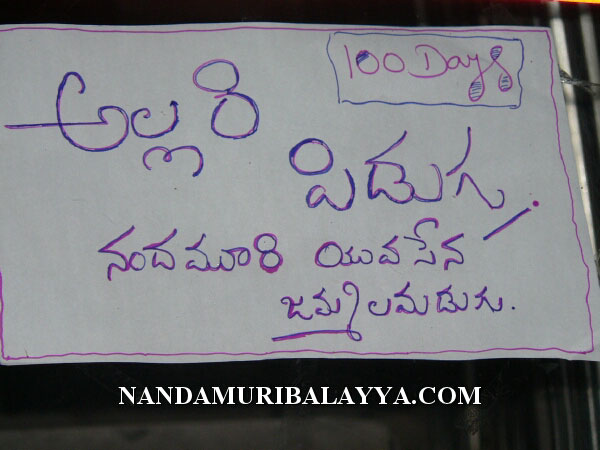 100 Days
అల్లరి
పిడుగు.
నందమూరి యువసేన
జమ్మలమడుగు.
NANDAMURIBALAYYA.COM